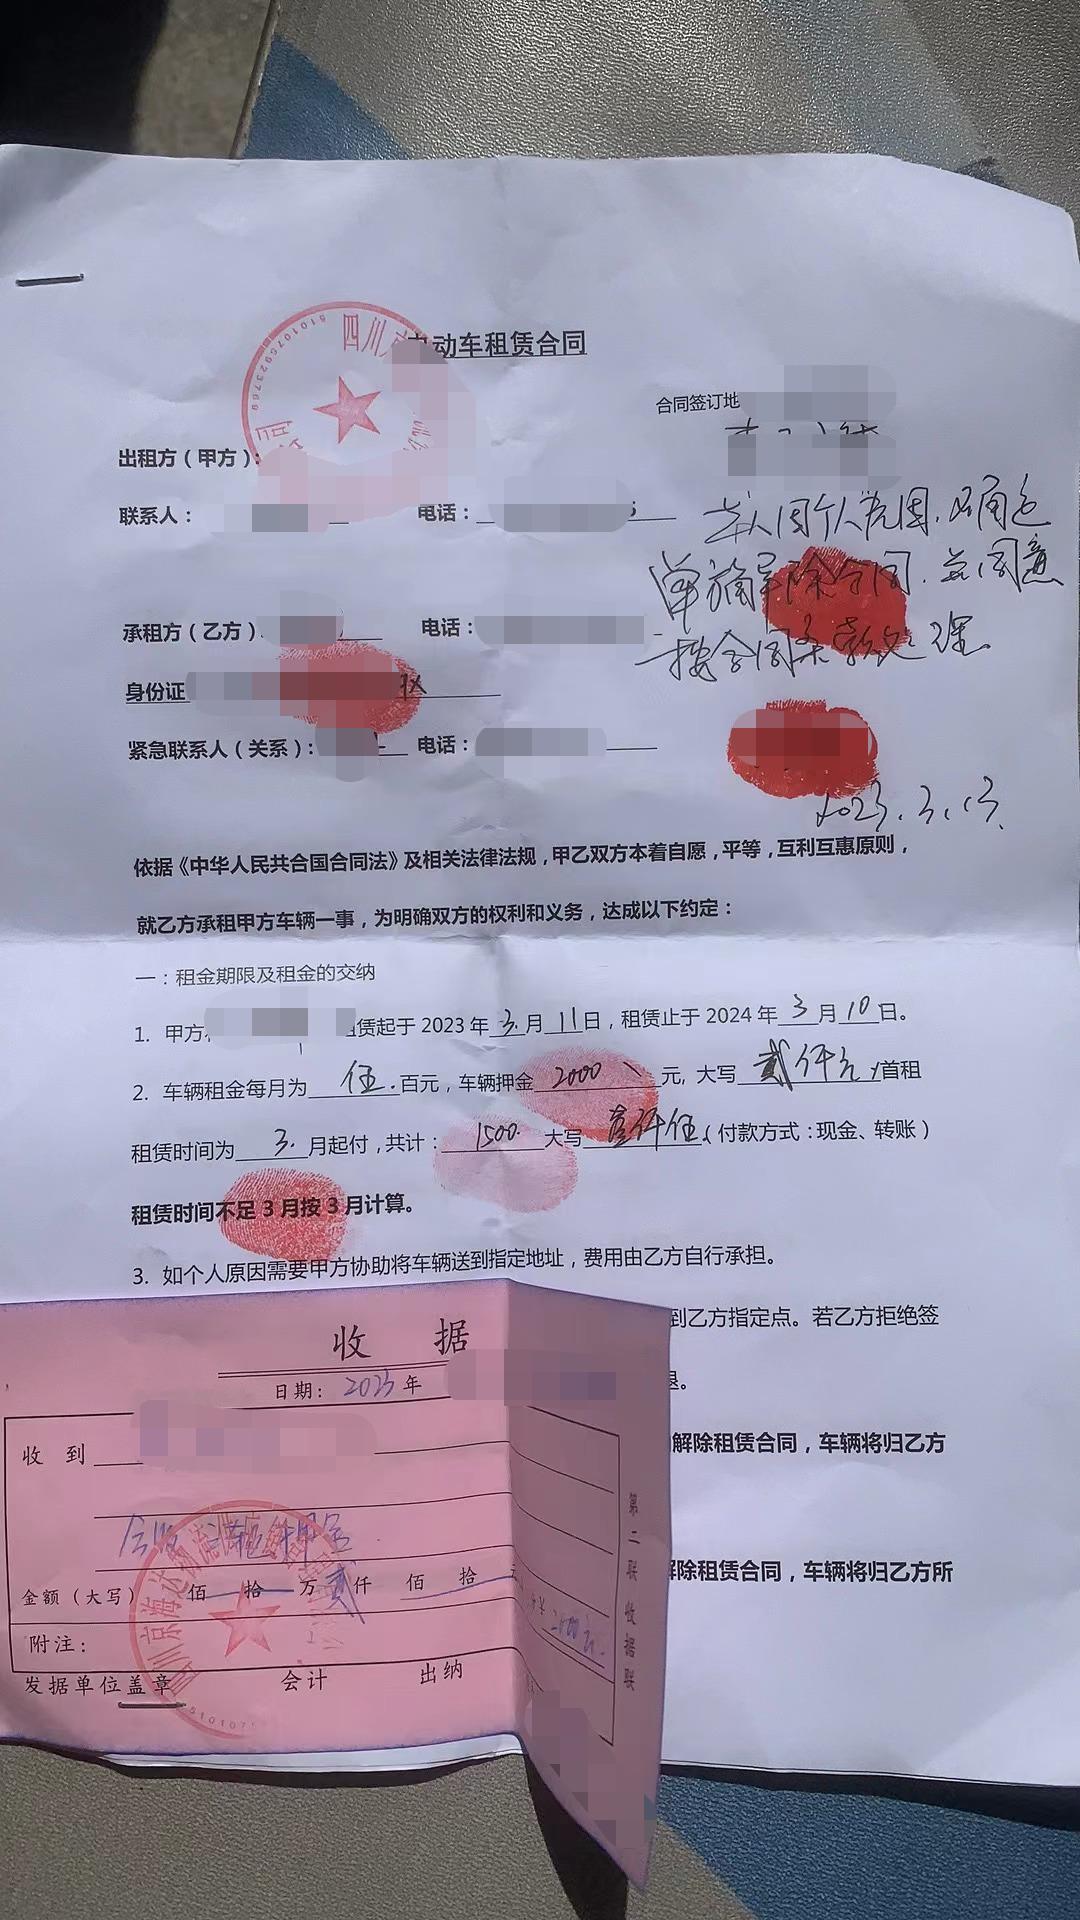 四川
5101075923769
电动车租赁合同
合同签订地
出租方（甲方）：
联系人：
电话：
本人因个人原因，
单方解除合同，并同意
一切按合同条款处理
承租方（乙方）
电话：
身份证
紧急联系人（关系）：
电话：
2023.3.13
依据《中华人民共合国合同法》及相关法律法规，甲乙双方本着自愿，平等，互利互惠原则，
就乙方承租甲方车辆一事，为明确双方的权利和义务，达成以下约定：
一：租金期限及租金的交纳
1. 甲方 租赁起于 2023 年 3 月 11 日，租赁止于 2024 年 3 月 10 日。
2. 车辆租金每月为 伍 百元，车辆押金 2000 元，大写 贰仟元 首租
租赁时间为 3 月起付，共计： 1500 大写 壹仟伍（付款方式：现金、转账）
租赁时间不足 3 月按 3 月计算。
3. 如个人原因需要甲方协助将车辆送到指定地址，费用由乙方自行承担。
到乙方指定点。若乙方拒绝签
退。
解除租赁合同，车辆将归乙方
解除租赁合同，车辆将归乙方所
收 据
日期：2023年
收 到
押金
金额（大写） 佰 拾 万 贰 仟 佰 拾 元
附注：
发据单位盖章 会计 出纳
第二联收据联
四川京海达物流
510107